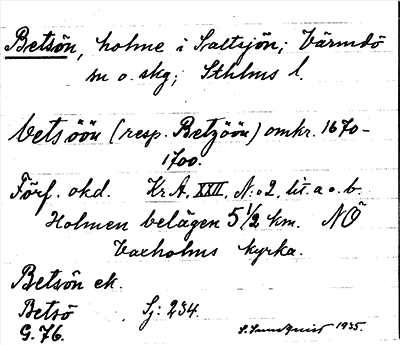 Betsön, holme i Saltsjön; Värmdö
sn o. skg; Sthlms l.
Betsöön (resp. Betzöön) omkr. 1670-
1700.
Förf. okd. Kr.A. XXII, N:o 2, lit. a o. b.
Holmen belägen 5 1/2 km. NÖ
Vaxholms kyrka.
Betsön ek.
Betsö Sj: 234.
G. 76. S. Sundquist 1935.